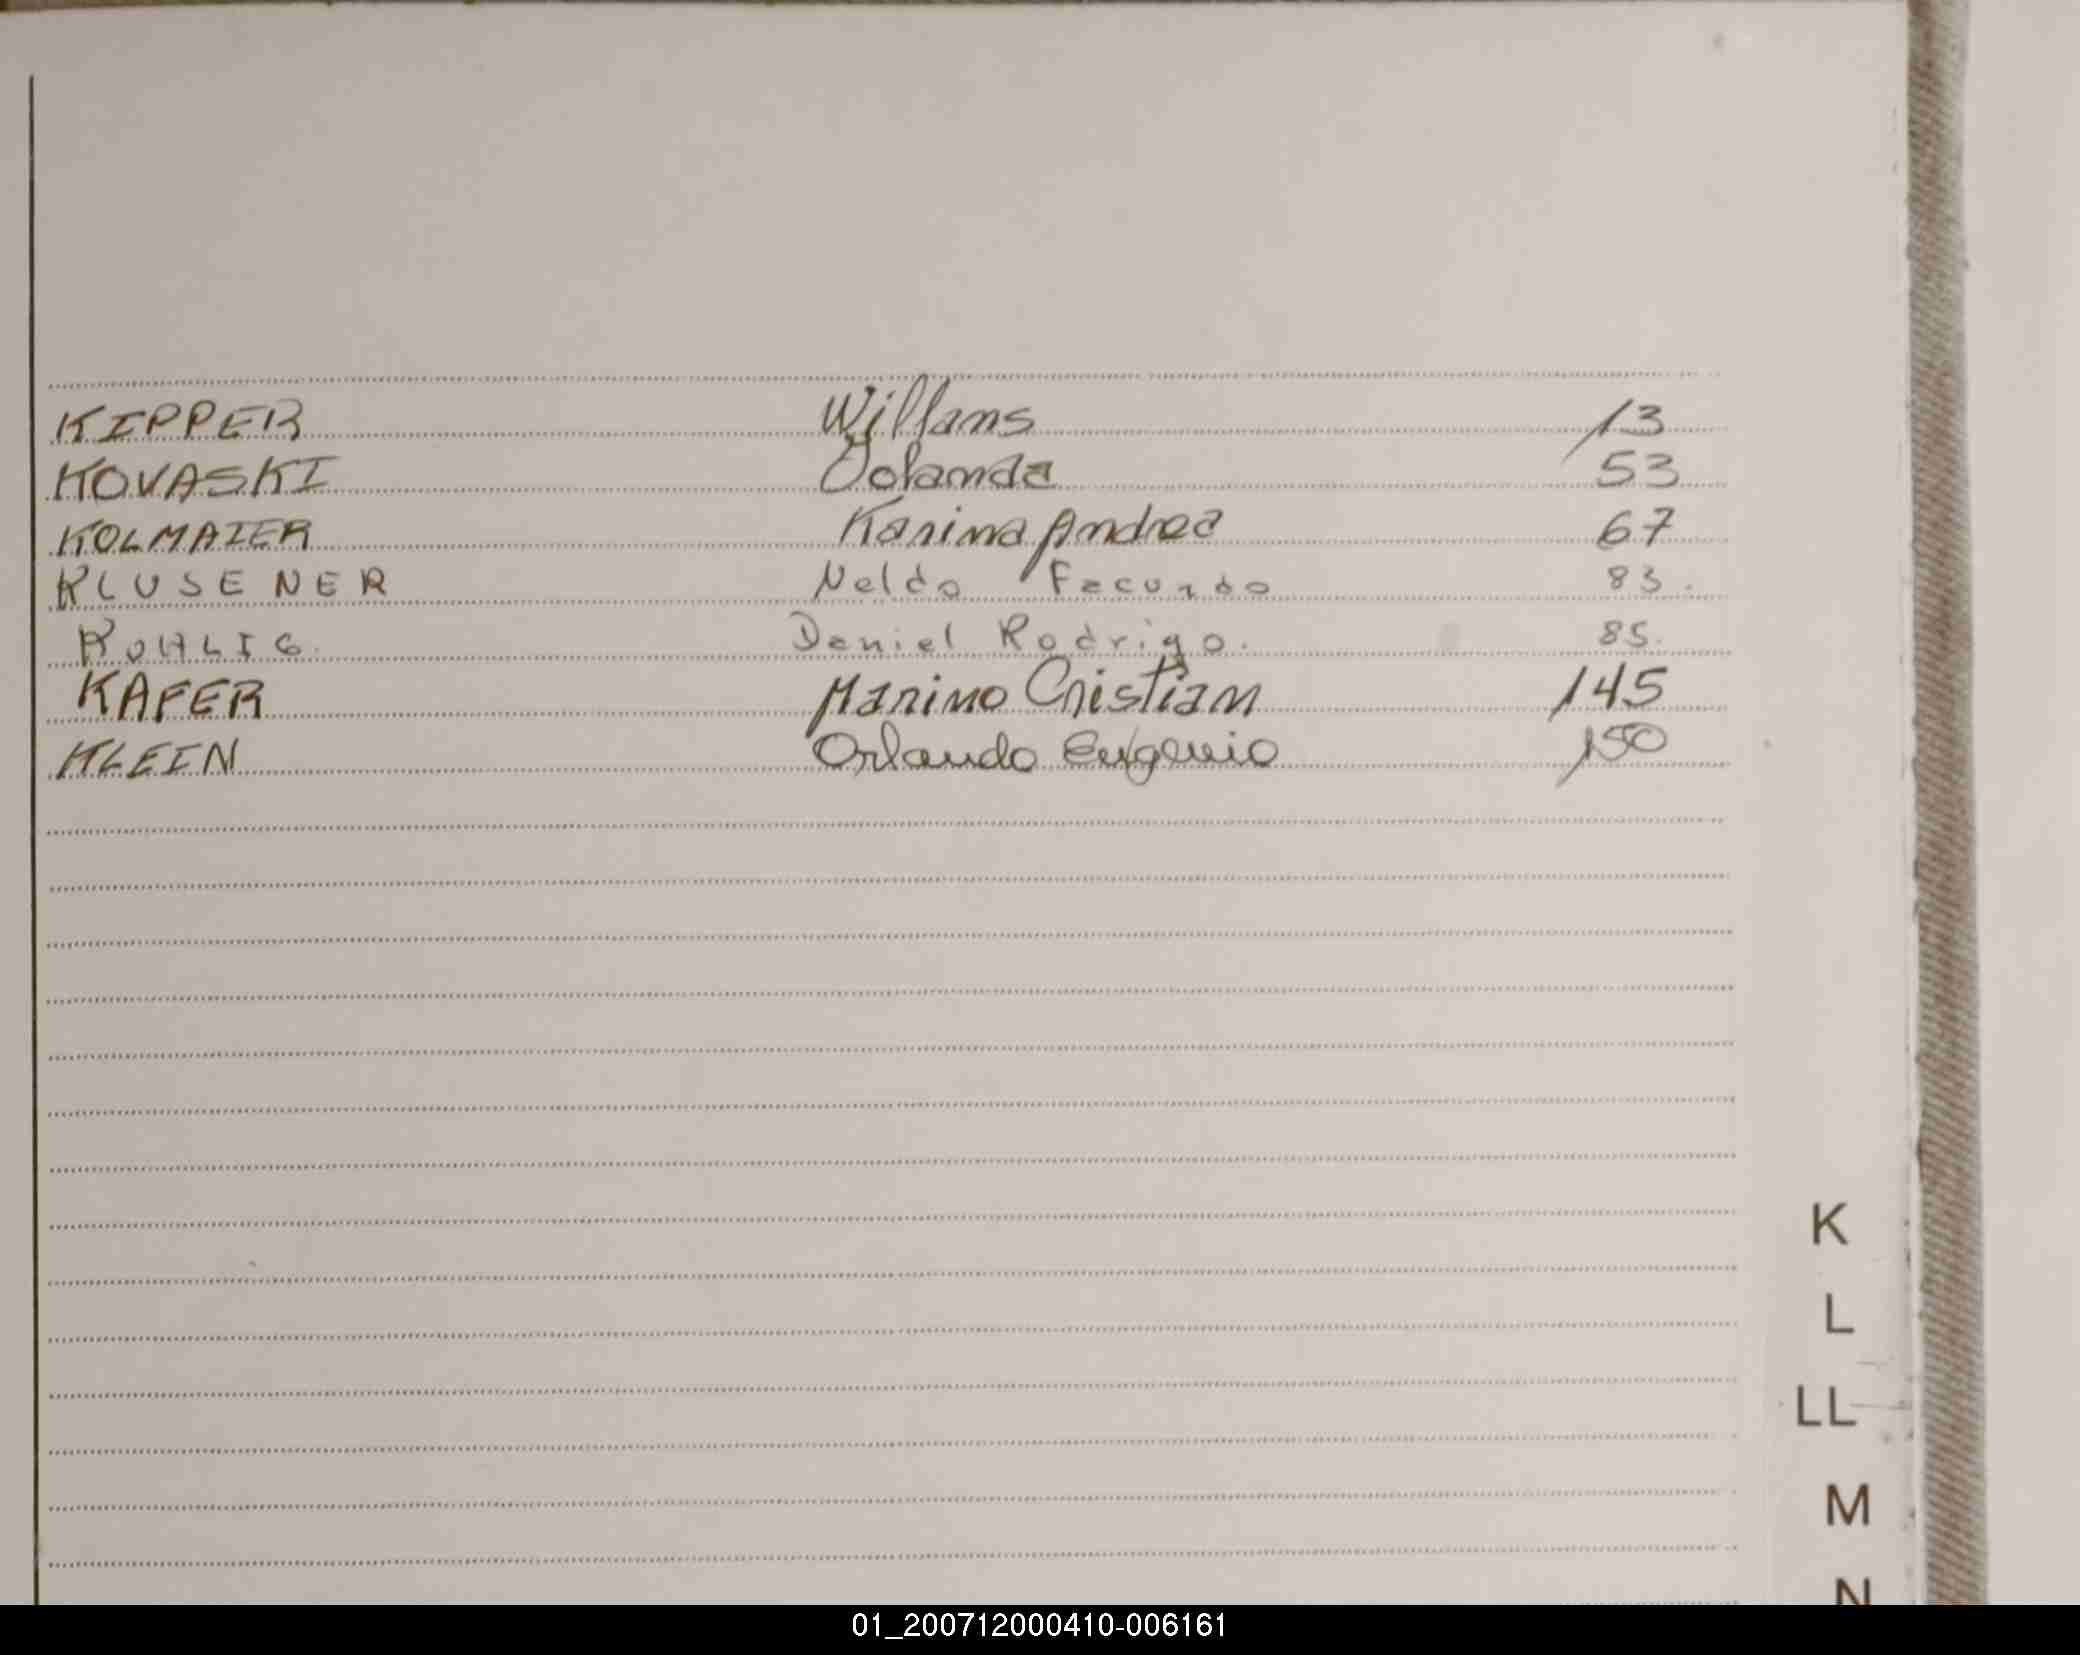 KIPPER Willans 13
KOVASKI Yolanda 53
KOLMAIER Karina Andrea 67
KLUSENER Neldo Facundo 83.
KOHLIG. Daniel Rodrigo. 85.
KAFER Marino Cristian 145
KLEIN Orlando Eugenio 150
K
L
LL
M
N
01_200712000410-006161